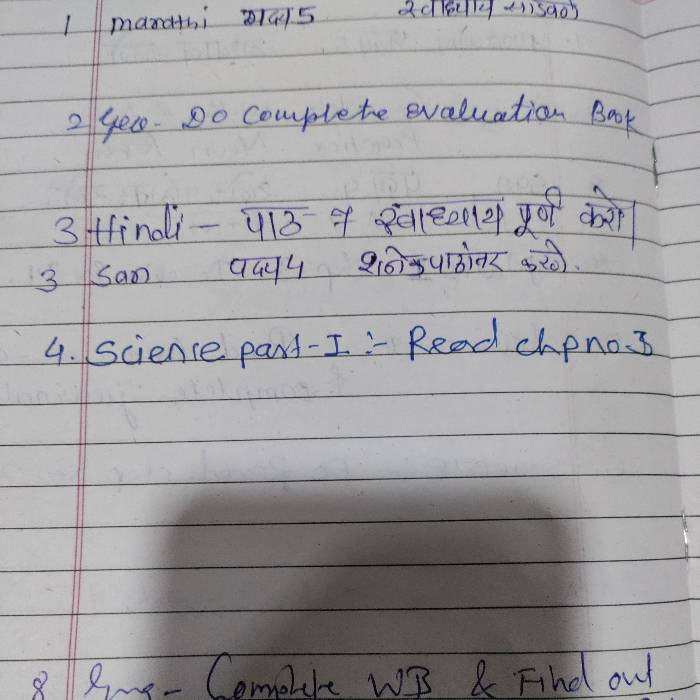 1 marathi गद्य 5 स्वाध्याय सोडवणे
2 Geo. Do Complete evaluation Book
3 Hindi - पाठ 7 स्वाध्याय पूर्ण करो|
3 San पद्य 4 करणे.
4. Science part-I :- Read chp no. 3
8 Eng - Complete WB & Find out